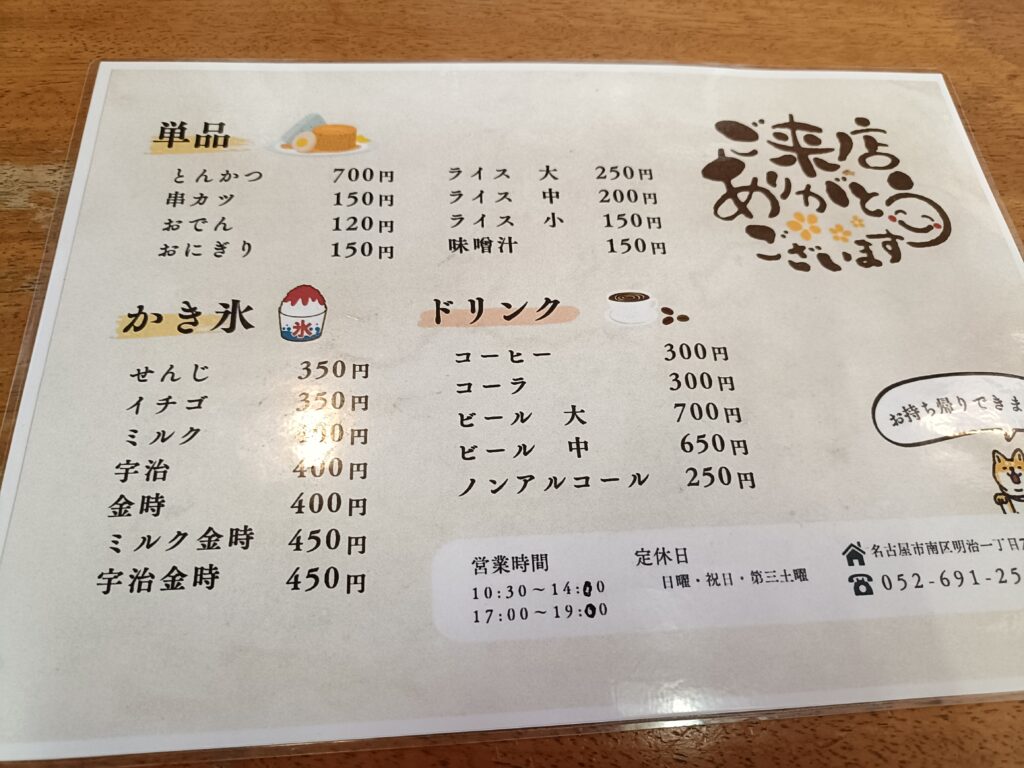 単品
とんかつ 700円
串カツ 150円
おでん 120円
おにぎり 150円
ライス 大 250円
ライス 中 200円
ライス 小 150円
味噌汁 150円
ご来店
ありがとう
ございます
かき氷
氷
せんじ 350円
イチゴ 350円
ミルク 400円
宇治 400円
金時 400円
ミルク金時 450円
宇治金時 450円
ドリンク
コーヒー 300円
コーラ 300円
ビール 大 700円
ビール 中 650円
ノンアルコール 250円
お持ち帰りできま
営業時間
10:30～14:00
17:00～19:00
定休日
日曜・祝日・第三土曜
名古屋市南区明治一丁目7
052-691-25